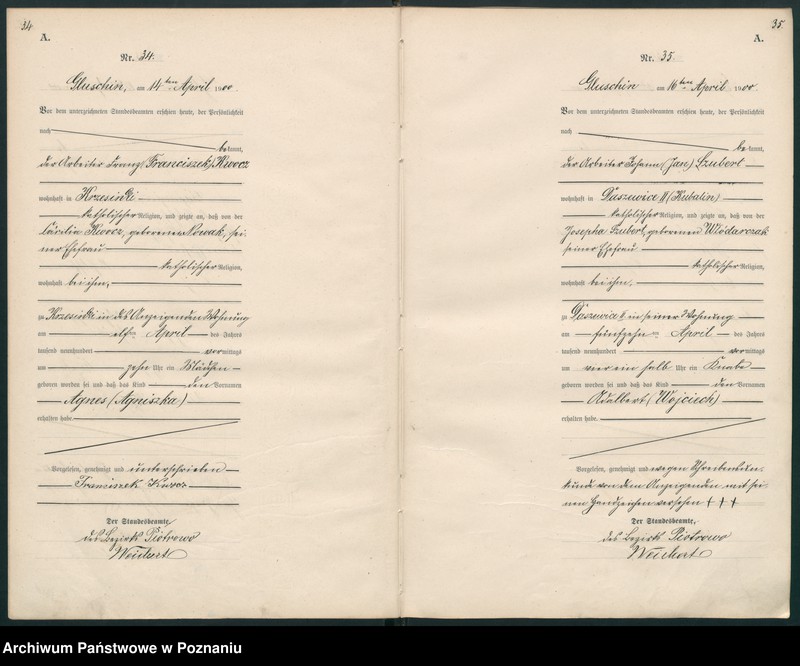 34
A.
Nr. 34.
Gluschin, am 14ten April 1900.
Vor dem unterzeichneten Standesbeamten erschien heute, der Persönlichkeit
nach
bekannt,
der Arbeiter Franz (Franciszek) Kwocz
wohnhaft in Krzesinki
katholischer Religion, und zeigte an, daß von der
Cäcilia Kwocz, geborenen Nowak, sei-
ner Ehefrau
katholischer Religion,
wohnhaft bei ihm,
zu Krzesinki in des Anzeigenden Wohnung
am elften April des Jahres
tausend neunhundert vormittags
um zehn Uhr ein Mädchen
geboren worden sei und daß das Kind den Vornamen
Agnes (Agniszka)
erhalten habe.
Vorgelesen, genehmigt und unterschrieben
Franciszek Kwocz
Der Standesbeamte,
des Bezirks Piotrowo
Weichert
35
A.
Nr. 35
Gluschin am 16ten April 1900.
Vor dem unterzeichneten Standesbeamten erschien heute, der Persönlichkeit
nach
bekannt,
der Arbeiter Johann (Jan) Szubert
wohnhaft in Daszewice II (Kubalin)
katholischer Religion, und zeigte an, daß von der
Josepha Szubert, geborenen Włódarczak
seiner Ehefrau
katholischer Religion,
wohnhaft bei ihm,
zu Daszewice II in seiner Wohnung
am fünfzehn April des Jahres
tausend neunhundert vormittags
um vier ein halb Uhr ein Knabe
geboren worden sei und daß das Kind den Vornamen
Adalbert (Wojciech)
erhalten habe.
Vorgelesen, genehmigt und wegen Schreibensun-
kunde von dem Anzeigenden mit sei-
nem Handzeichen versehen + + +
Der Standesbeamte,
des Bezirks Piotrowo
Weichert
Archiwum Państwowe w Poznaniu